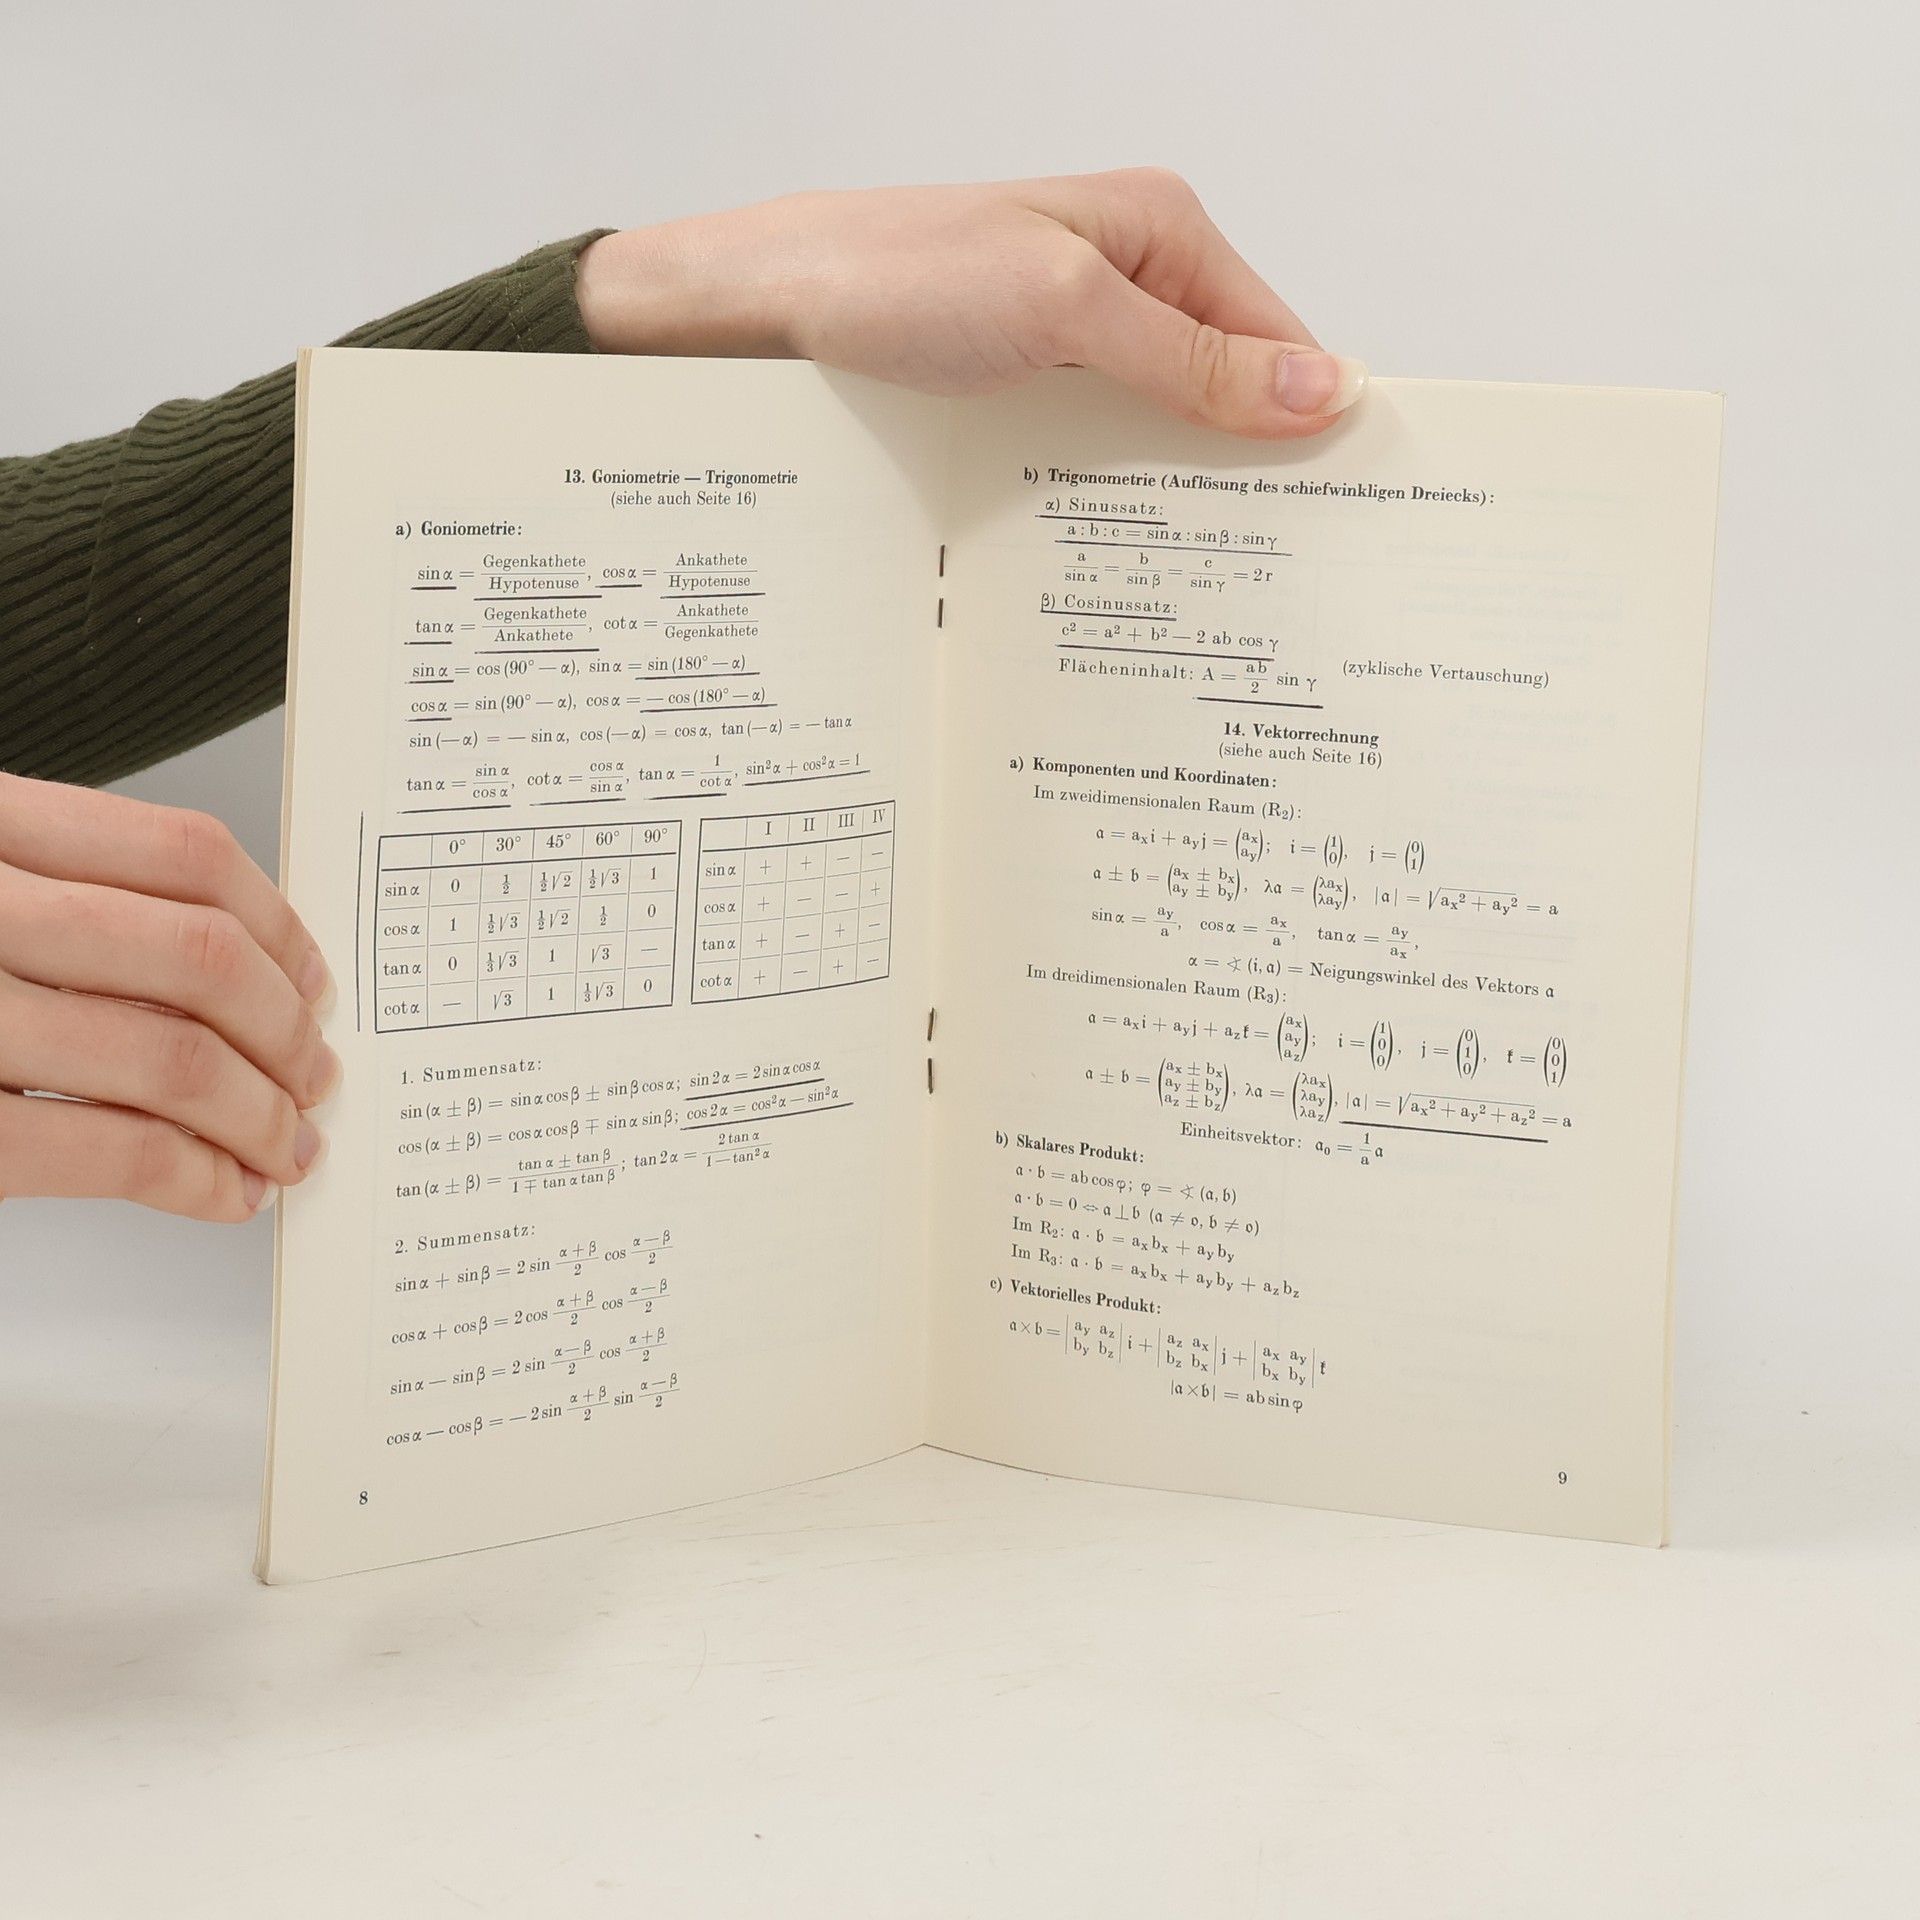 13. Goniometrie — Trigonometrie
(siehe auch Seite 16)
a) Goniometrie:
sin α = Gegenkathete/Hypotenuse, cos α = Ankathete/Hypotenuse
tan α = Gegenkathete/Ankathete, cot α = Ankathete/Gegenkathete
sin α = cos (90° — α), sin α = sin (180° — α)
cos α = sin (90° — α), cos α = — cos (180° — α)
sin (—α) = — sin α, cos (—α) = cos α, tan (—α) = — tan α
tan α = sin α/cos α, cot α = cos α/sin α, tan α = 1/cot α, sin²α + cos²α = 1
0° 30° 45° 60° 90°
sin α 0 1/2 1/2√2 1/2√3 1
cos α 1 1/2√3 1/2√2 1/2 0
tan α 0 1/3√3 1 √3 —
cot α — √3 1 1/3√3 0
I II III IV
sin α + + — —
cos α + — — +
tan α + — + —
cot α + — + —
1. Summensatz:
sin (α ± β) = sin α cos β ± sin β cos α; sin 2α = 2 sin α cos α
cos (α ± β) = cos α cos β ∓ sin α sin β; cos 2α = cos²α — sin²α
tan (α ± β) = (tan α ± tan β)/(1 ∓ tan α tan β); tan 2α = 2 tan α/(1 — tan²α)
2. Summensatz:
sin α + sin β = 2 sin (α + β)/2 cos (α — β)/2
cos α + cos β = 2 cos (α + β)/2 cos (α — β)/2
sin α — sin β = 2 sin (α — β)/2 cos (α + β)/2
cos α — cos β = — 2 sin (α + β)/2 sin (α — β)/2
8
b) Trigonometrie (Auflösung des schiefwinkligen Dreiecks):
α) Sinussatz:
a : b : c = sin α : sin β : sin γ
a/sin α = b/sin β = c/sin γ = 2 r
β) Cosinussatz:
c² = a² + b² — 2 ab cos γ
Flächeninhalt: A = ab/2 sin γ (zyklische Vertauschung)
14. Vektorrechnung
(siehe auch Seite 16)
a) Komponenten und Koordinaten:
Im zweidimensionalen Raum (R₂):
𝔞 = aₓ𝔦 + a_y𝔧 = (aₓ a_y); 𝔦 = (1 0), 𝔧 = (0 1)
𝔞 ± 𝔟 = (aₓ ± bₓ a_y ± b_y), λ𝔞 = (λaₓ λa_y), |𝔞| = √(aₓ² + a_y²) = a
sin α = a_y/a, cos α = aₓ/a, tan α = a_y/aₓ,
α = ∢ (𝔦, 𝔞) = Neigungswinkel des Vektors 𝔞
Im dreidimensionalen Raum (R₃):
𝔞 = aₓ𝔦 + a_y𝔧 + a_z𝔨 = (aₓ a_y a_z); 𝔦 = (1 0 0), 𝔧 = (0 1 0), 𝔨 = (0 0 1)
𝔞 ± 𝔟 = (aₓ ± bₓ a_y ± b_y a_z ± b_z), λ𝔞 = (λaₓ λa_y λa_z), |𝔞| = √(aₓ² + a_y² + a_z²) = a
Einheitsvektor: 𝔞₀ = 1/a 𝔞
b) Skalares Produkt:
𝔞 · 𝔟 = ab cos φ; φ = ∢ (𝔞, 𝔟)
𝔞 · 𝔟 = 0 ⇔ 𝔞 ⊥ 𝔟 (𝔞 ≠ 𝔬, 𝔟 ≠ 𝔬)
Im R₂: 𝔞 · 𝔟 = aₓbₓ + a_y b_y
Im R₃: 𝔞 · 𝔟 = aₓbₓ + a_y b_y + a_z b_z
c) Vektorielles Produkt:
𝔞 × 𝔟 = |a_y a_z b_y b_z| 𝔦 + |a_z aₓ b_z bₓ| 𝔧 + |aₓ a_y bₓ b_y| 𝔨
|𝔞 × 𝔟| = ab sin φ
9